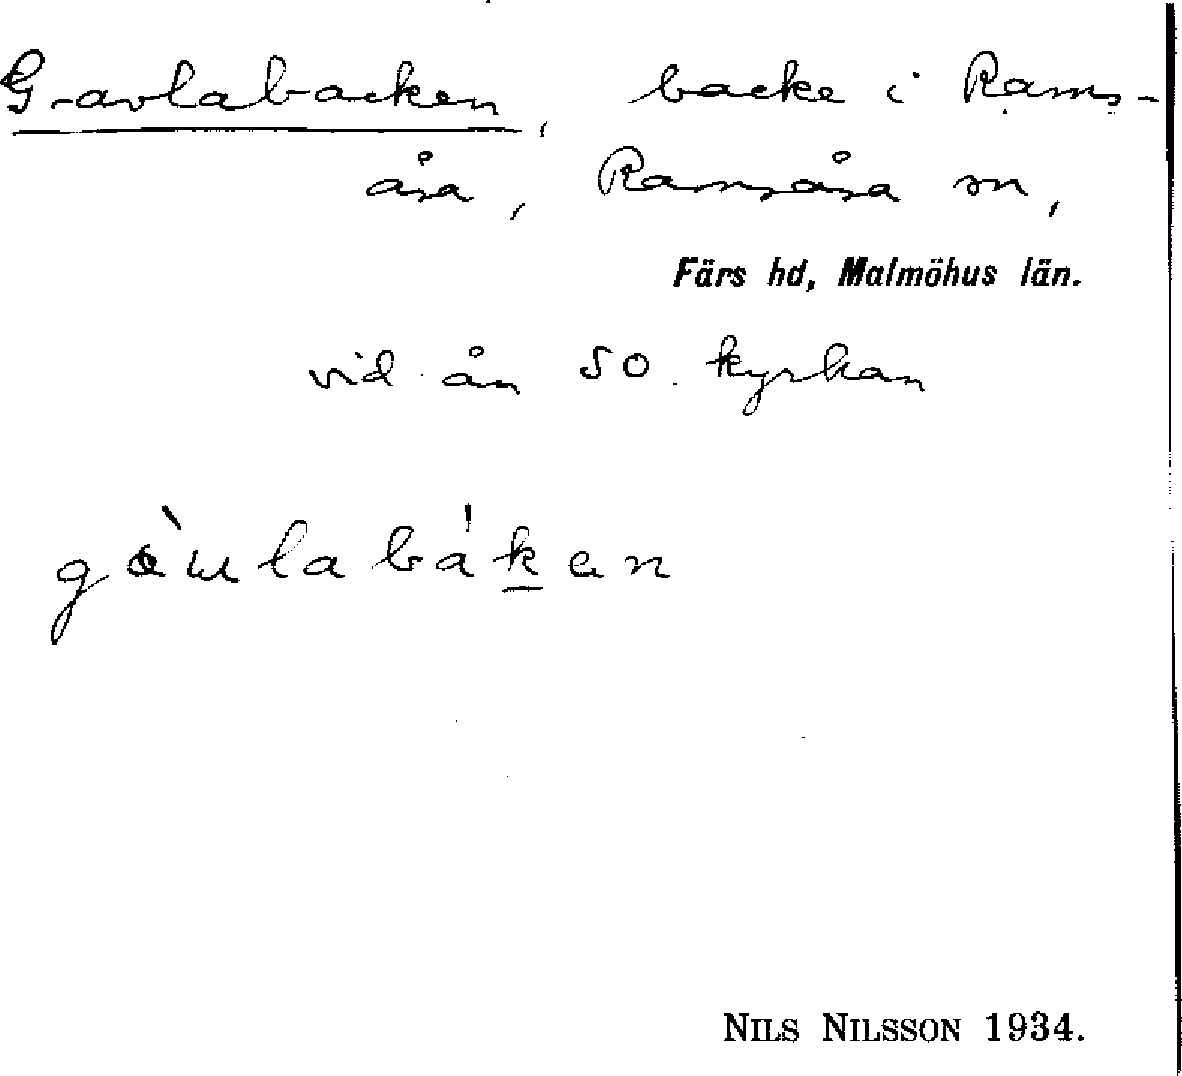 Gavlabacken, backe i Rams-
åsa, Ramsåsa sn,
Färs hd, Malmöhus län.
vid ån SO kyrkan
NILS NILSSON 1934.